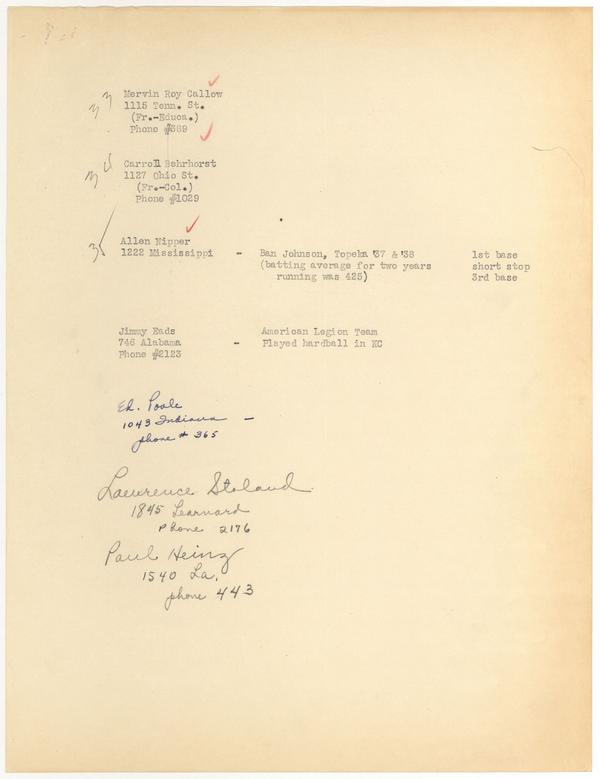 Mervin Roy Callow
1115 Tenn. St.
(Fr.-Educa.)
Phone #389
Carroll Behrhorst
1127 Ohio St.
(Fr.-Col.)
Phone #1029
Allen Nipper
1222 Mississippi - Ban Johnson, Topeka '37 & '38 1st base
(batting average for two years short stop
running was 425) 3rd base
Jimmy Eads American Legion Team
746 Alabama - Played hardball in KC
Phone #2123
Ed. Poole
1043 Indiana -
phone # 365
Lawrence Stoland
1845 Learnard
Phone 2176
Paul Heinz
1540 La.
phone 443